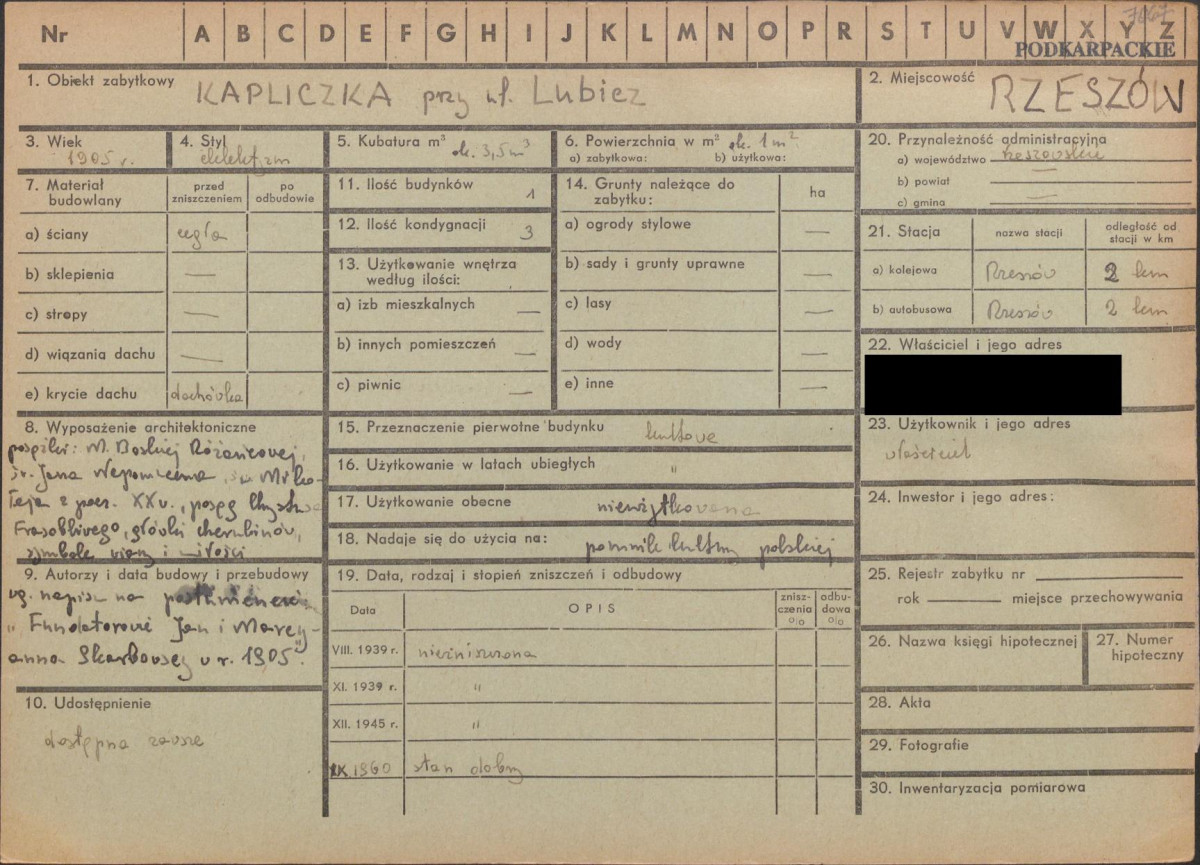 7667
Nr A B C D E F G H I J K L M N O P R S T U V W X Y Z
PODKARPACKIE
1. Obiekt zabytkowy KAPLICZKA przy ul. Lubicz
2. Miejscowość RZESZÓW
3. Wiek 1905 r.
4. Styl eklektyzm
5. Kubatura m³ ok. 3,5 m³
6. Powierzchnia w m² ok. 1 m²
a) zabytkowa: b) użytkowa:
7. Materiał budowlany
przed zniszczeniem
po odbudowie
a) ściany cegła
b) sklepienia —
c) stropy —
d) wiązania dachu —
e) krycie dachu dachówka
8. Wyposażenie architektoniczne
posążki: M. Boskiej Różańcowej,
św. Jana Nepomucena, św. Miko-
łaja z pocz. XX w., posąg Chrystusa
Frasobliwego, główki cherubinów,
symbole wiary i miłości
9. Autorzy i data budowy i przebudowy
wg. napisu na postumencie
"Fundatorowie Jan i Mary-
anna Skarbowscy w r. 1905".
10. Udostępnienie
dostępna zawsze
11. Ilość budynków 1
12. Ilość kondygnacji 3
13. Użytkowanie wnętrza
według ilości:
a) izb mieszkalnych —
b) innych pomieszczeń —
c) piwnic —
14. Grunty należące do
zabytku: ha
a) ogrody stylowe —
b) sady i grunty uprawne —
c) lasy —
d) wody —
e) inne —
15. Przeznaczenie pierwotne budynku kultowe
16. Użytkowanie w latach ubiegłych "
17. Użytkowanie obecne nieużytkowana
18. Nadaje się do użycia na: pomnik kultury polskiej
19. Data, rodzaj i stopień zniszczeń i odbudowy
Data OPIS znisz-czenia % odbu-dowa %
VIII. 1939 r. niezniszczona
XI. 1939 r. "
XII. 1945 r. "
IX 1960 stan dobry
20. Przynależność administracyjna
a) województwo rzeszowskie
b) powiat —
c) gmina —
21. Stacja nazwa stacji odległość od stacji w km
a) kolejowa Rzeszów 2 km
b) autobusowa Rzeszów 2 km
22. Właściciel i jego adres
23. Użytkownik i jego adres
właściciel
24. Inwestor i jego adres:
25. Rejestr zabytku nr
rok miejsce przechowywania
26. Nazwa księgi hipotecznej
27. Numer hipoteczny
28. Akta
29. Fotografie
30. Inwentaryzacja pomiarowa